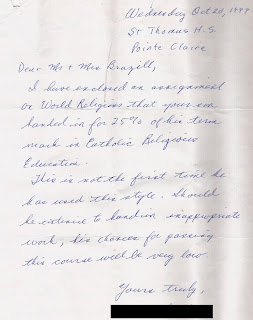 Wednesday Oct 20, 1999
St Thomas H.S.
Pointe Claire
Dear Mr + Mrs Brazill,
I have enclosed an assignment
on World Religions that your son
handed in for 25% of his term
mark in Catholic Religious
Education.
This is not the first time he
has used this style. Should
he continue to hand in inappropriate
work, his chances for passing
this course will be very low
Yours truly,